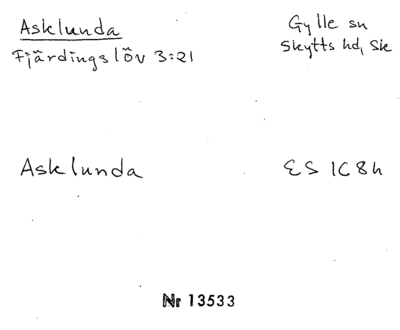 Asklunda
Gylle sn
Fjärdingslöv 3:21
Skytts hd, Sk
Asklunda
ES 1C8h
Nr 13533